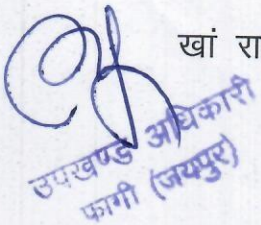 खां रा
उपखण्ड अधिकारी
फागी (जयपुर)